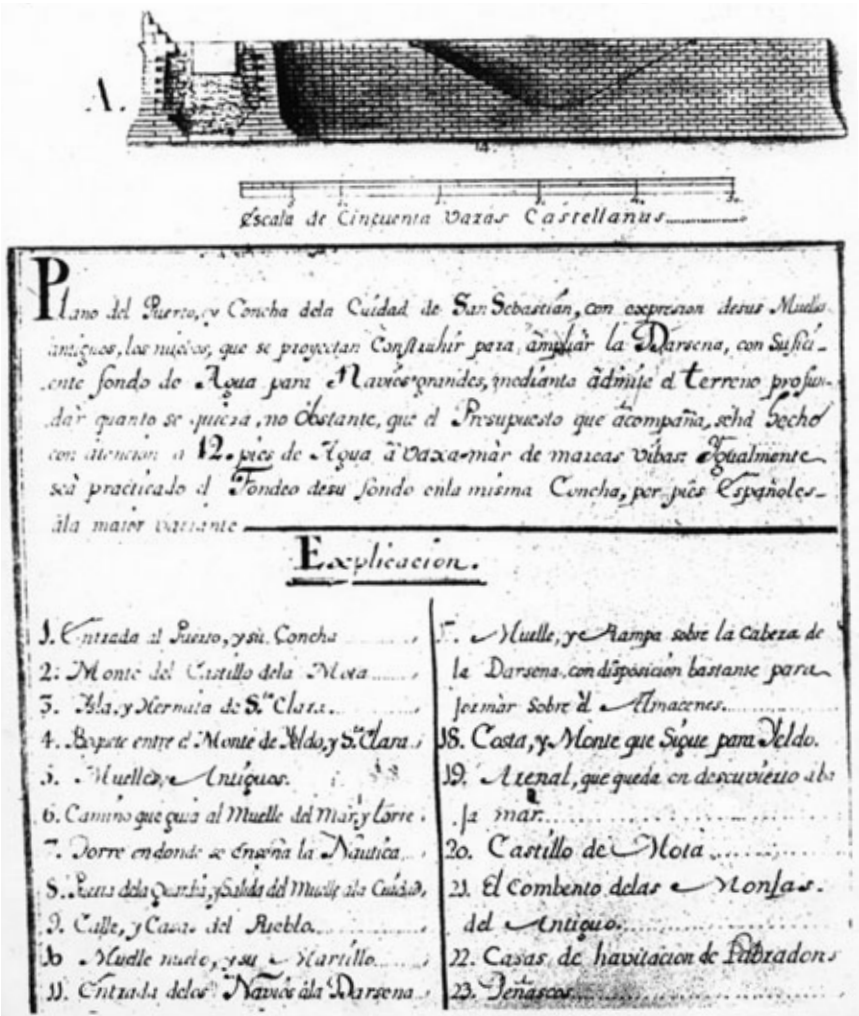 A.
14
5 10 20 30 40 50
Escala de Cinquenta Varas Castellanus
Plano del Puerto, y Concha dela Cuidad de San Sebastián, con expresion desus Muelles
antiguos, los nuevos, que se proyectan Construhir para ampliar la Darsena, con Sufici-
ente fondo de Agua para Navios grandes, mediante admite el terreno profun-
dar quanto se quiera, no obstante, que el Presupuesto que acompaña, sehá hecho
con atencion a 12. pies de Agua à vaxa-mar de mareas vibas: Igualmente
se à practicado el Fondeo desu fondo enla misma Concha, por pies Españoles
àla maior variante
Explicacion.
1. Entrada al Puerto, y su Concha
2. Monte del Castillo dela Mota
3. Isla, y Hermita de S.ta Clara
4. entre el Monte de Yeldo, y S.ta Clara
5. Muelles Antiguos.
6. Camino que guia al Muelle del Mar, y torre
7. Torre endonde se enseña la Náutica
8. Puerta dela Guardia, y Salida del Muelle ála Cuidad
9. Calle, y Casas del Pueblo
10 Muelle nuebo, y su Martillo
11. Entrada delos Navios àla Darsena
Muelle, y Rampa sobre la Cabeza de
la Darsena, con disposicion bastante para
formar sobre él Almacenes
18. Costa, y Monte que Sigue para Yeldo.
19. Arenal, que queda en descuvierto aba
ja mar
20. Castillo de Mota
21. El Combento delas Monjas
del Antiguo.
22. Casas de havitacion de Labradores
23. Peñascos